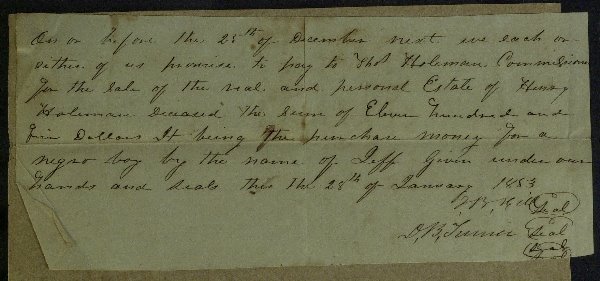 On or before the 25th of December next we each or
either of us promise to pay to Thos Holeman Commissioner
for the sale of the real and personal Estate of Henry
Holeman Deceased the Sum of Eleven hundred and
five Dollars It being the purchase money for a
negro boy by the name of Jeff Given under our
hands and seals this the 28th of January 1853
Seal
D,B,Turner Seal
Seal